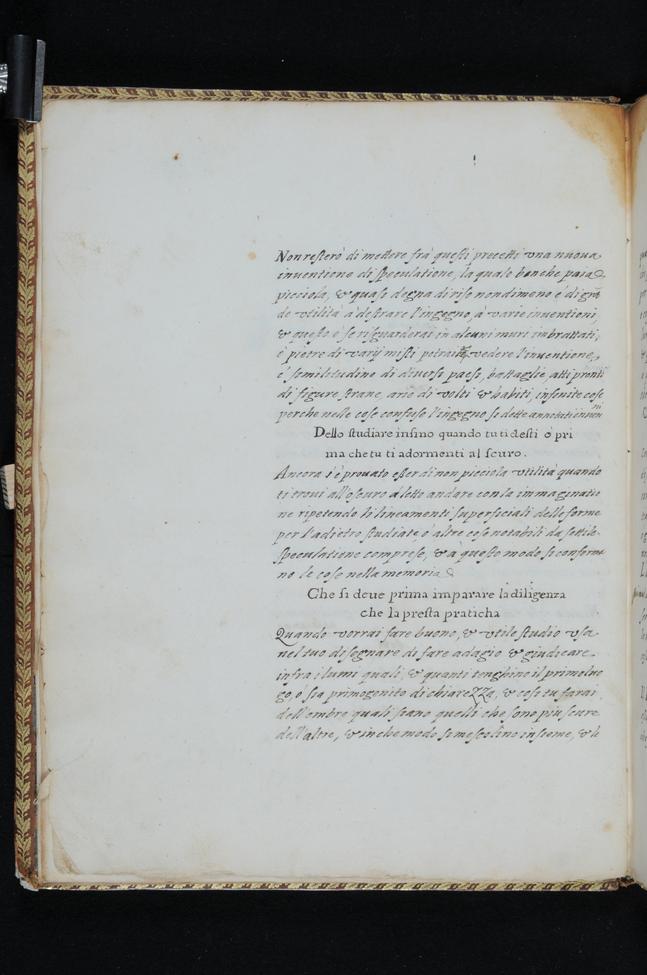 Non resterò di mettere frà questi precetti una nuoua
inuentione di speculatione, la quale benche paia
picciola, & quasi degna di riso nondimeno è di grã
de utilità à destare l'ingegno, à varie inuentioni,
& questo è se risguarderai in alcuni muri imbrattati,
ò pietre di varij misti potrai vedere l'inuentione,
è similitudine di diuersi paesi, battaglie, atti pronti
di figure strane, arie di volti & habiti, infinite cose
perche nelle cose confuse l'ingegno si desta à
Dello studiare insino quando tu ti desti ò pri
ma che tu ti adormenti al scuro.
Ancora s'è prouato esser di non picciola utilità quando
ti troui all'oscuro à letto andare con la immaginatio
ne ripetendo li lineamenti superficiali delle forme
per l'adietro studiate, ò altre cose notabili da sottile
speculatione comprese, & à questo modo si conferma
no le cose nella memoria
Che si deue prima imparare la diligenza
che la presta praticha
Quando vorrai fare buono, & utile studio usa
nel tuo disegnare di fare adagio & giudicare
infra i lumi quali, & quanti tenghino il primo luo
go, ò sia primogonito di chiarezza, & cosi tu farai
dell'ombre quali siano quelli che sono piu scure
dell'altre, & in che modo si mescolino insieme, & li